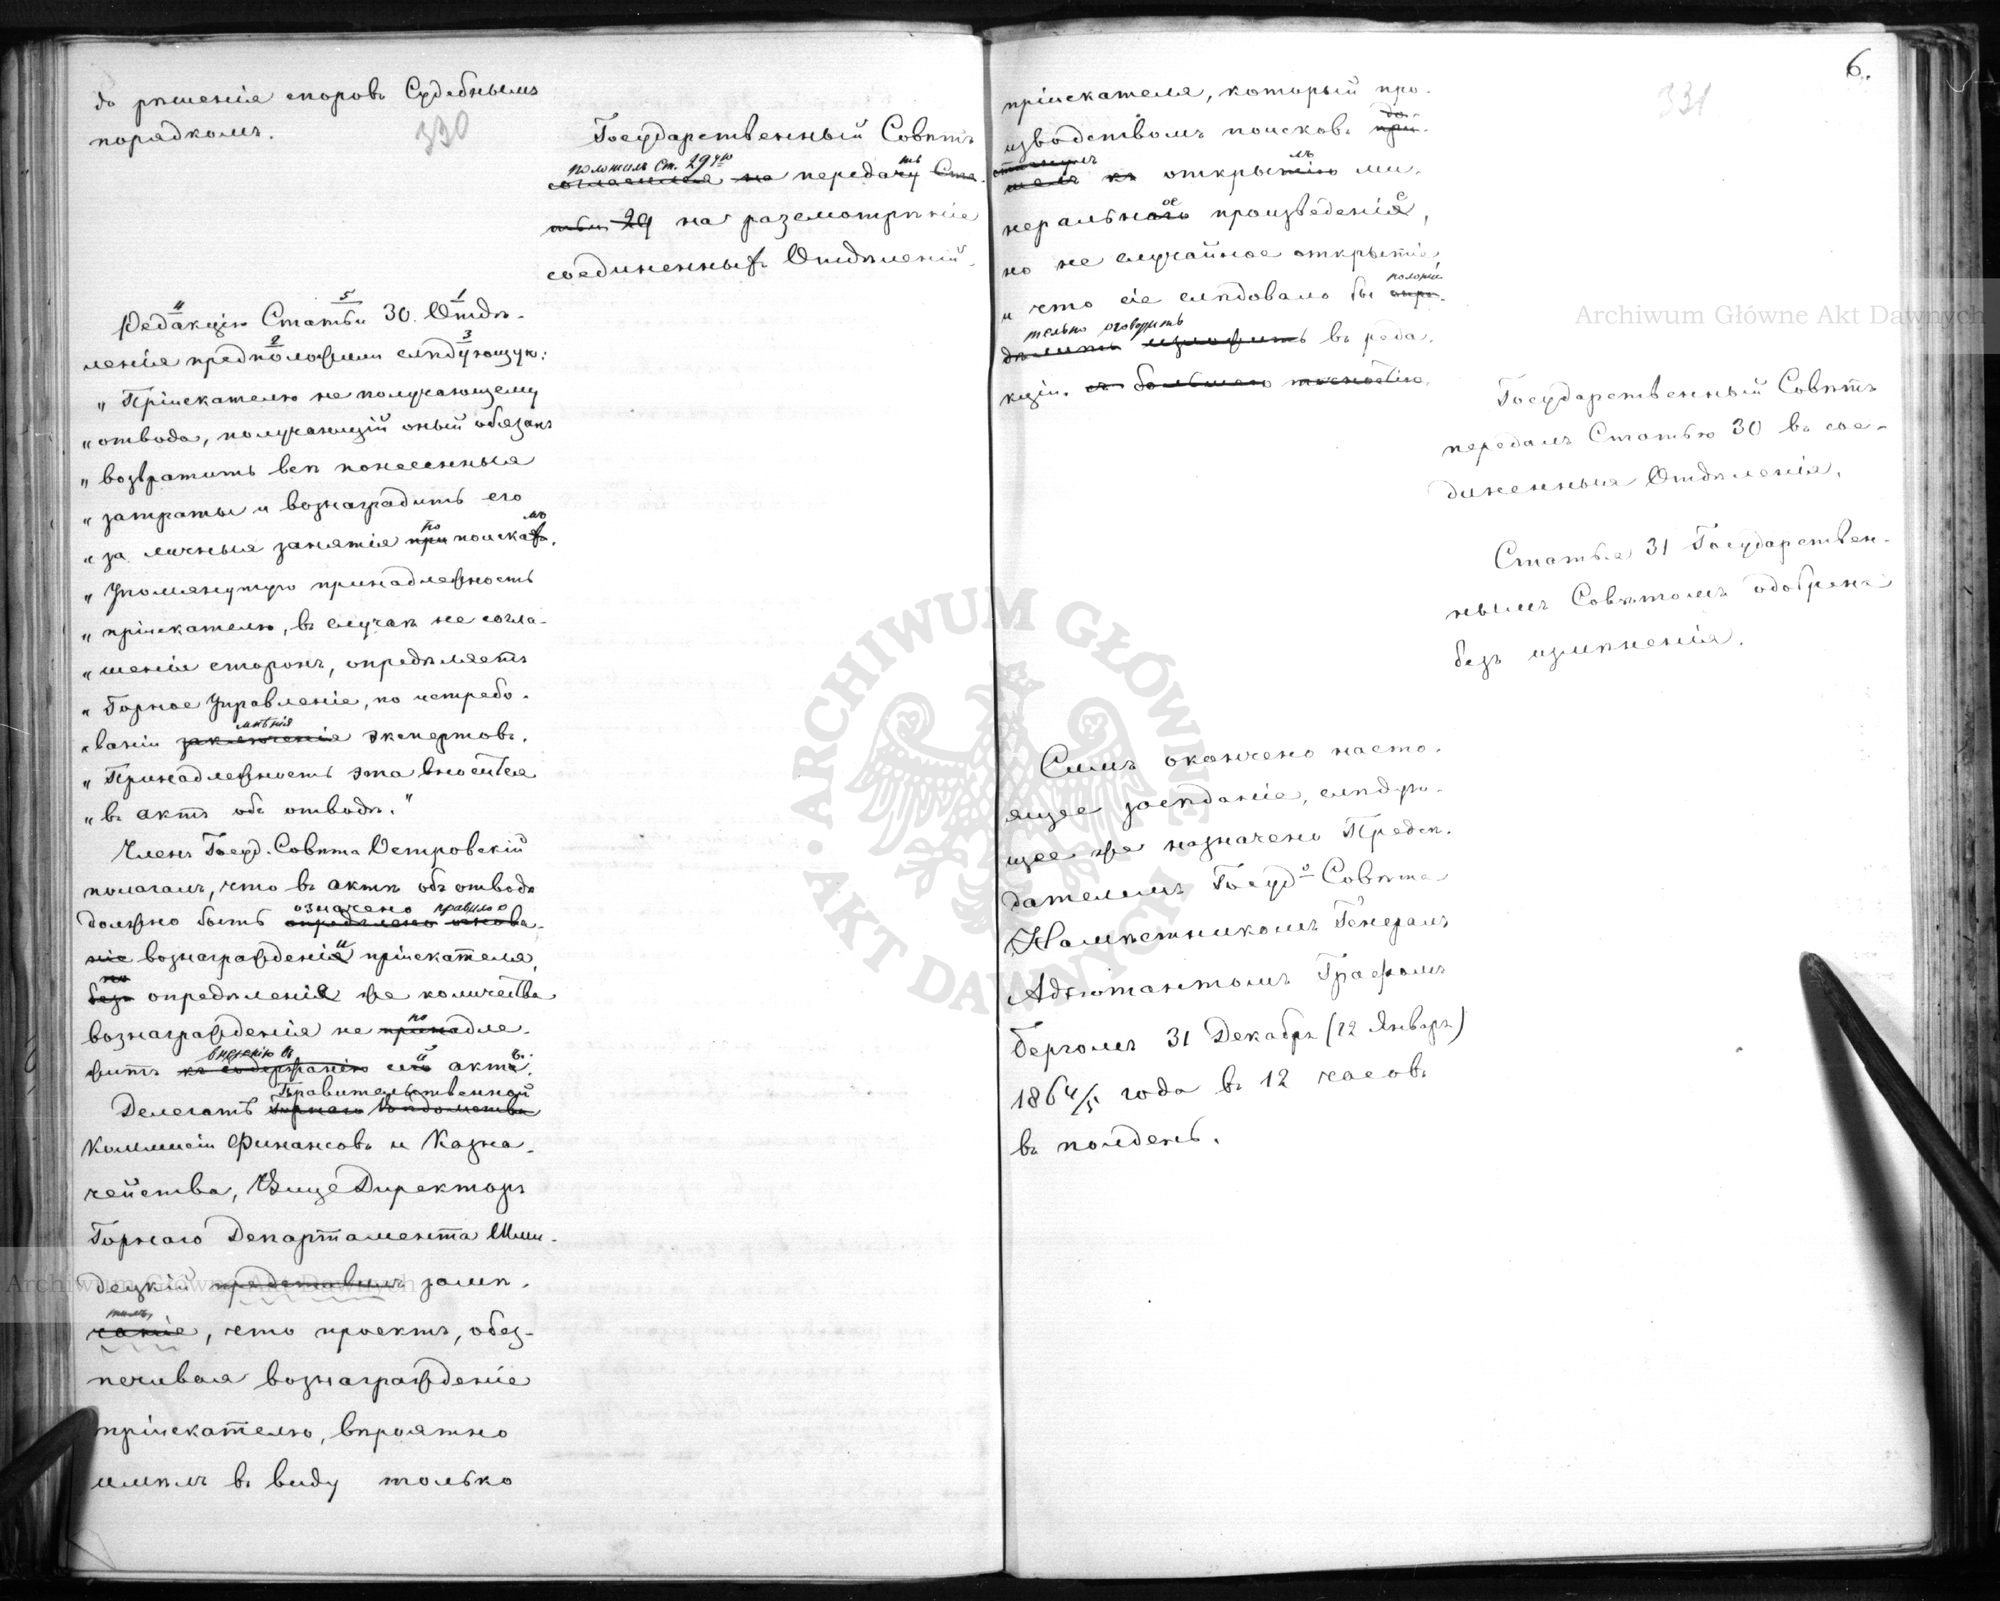 до рѣшенія споровъ Судебнымъ
порядкомъ.
330
Государственный Совѣтъ
положилъ Ст. 29ую
согласился на передачу Ста-
ть
тьи 29 на разсмотрѣніе
соединенныхъ Отдѣленій.
4 5 1
Редакцію Статьи 30. Отдѣ-
2 3
ленія предположили слѣдующую:
„ Пріискателю не получающему
„ отвода, получающій оный обязанъ
„ возвратить всѣ понесенныя
„ затраты и вознаградить его
по мъ
„ за личныя занятія при поискахъ.
„ Упомянутую принадлежность
„ пріискателю, въ случаѣ не согла-
„ шенія сторонъ, опредѣляетъ
„ Горное Управленіе, по истребо-
мнѣнія
„ ваніи заключенія экспертовъ.
„ Принадлежность эта вносится
„ въ актъ объ отводѣ."
Членъ Госуд. Совѣта Островскій
полагалъ, что въ актѣ объ отводѣ
означено правило о
должно быть опредѣлено основа-
и
ніе вознагражденія пріискателя,
но
безъ опредѣленія же количества
по
вознагражденія не принадле-
внесенію въ й ъ.
житъ къ содержанію сего акта.
Правительственной
Делегатъ Горнаго Вѣдомства
Коммисіи Финансовъ и Казна-
чейства, Вице Директоръ
Горнаго Департамента Шми-
децкій представилъ замѣ-
тилъ,
чаніе, что проектъ, обез-
печивая вознагражденіе
пріискателю, вѣроятно
имѣлъ въ виду только
6.
331
пріискателя, который про-
до-
изводствомъ поисковъ при-
стигнулъ лъ
шелъ къ открытію ми-
ое е
неральнаго произведенія,
но не случайное открытіе,
положи-
и что сіе слѣдовало бы опре-
тельно оговорить
дѣлить изложить въ реда-
кціи. съ большею точностію.
Государственный Совѣтъ
передалъ Статью 30 въ сое-
диненныя Отдѣленія.
Статья 31 Государствен-
нымъ Совѣтомъ одобрена
безъ измѣненія.
Симъ окончено насто-
ящее засѣданіе, слѣдую-
щее же назначено Предсѣ-
дателемъ Госудо Совѣта
Намѣстникомъ Генералъ
Адъютантомъ Графомъ
Бергомъ 31 Декабря (12 Января)
1864/5 года въ 12 часовъ
въ полдень.
Archiwum Główne Akt Dawnych
Archiwum Główne Akt Dawnych
· ARCHIWUM GŁÓWNE · AKT DAWNYCH